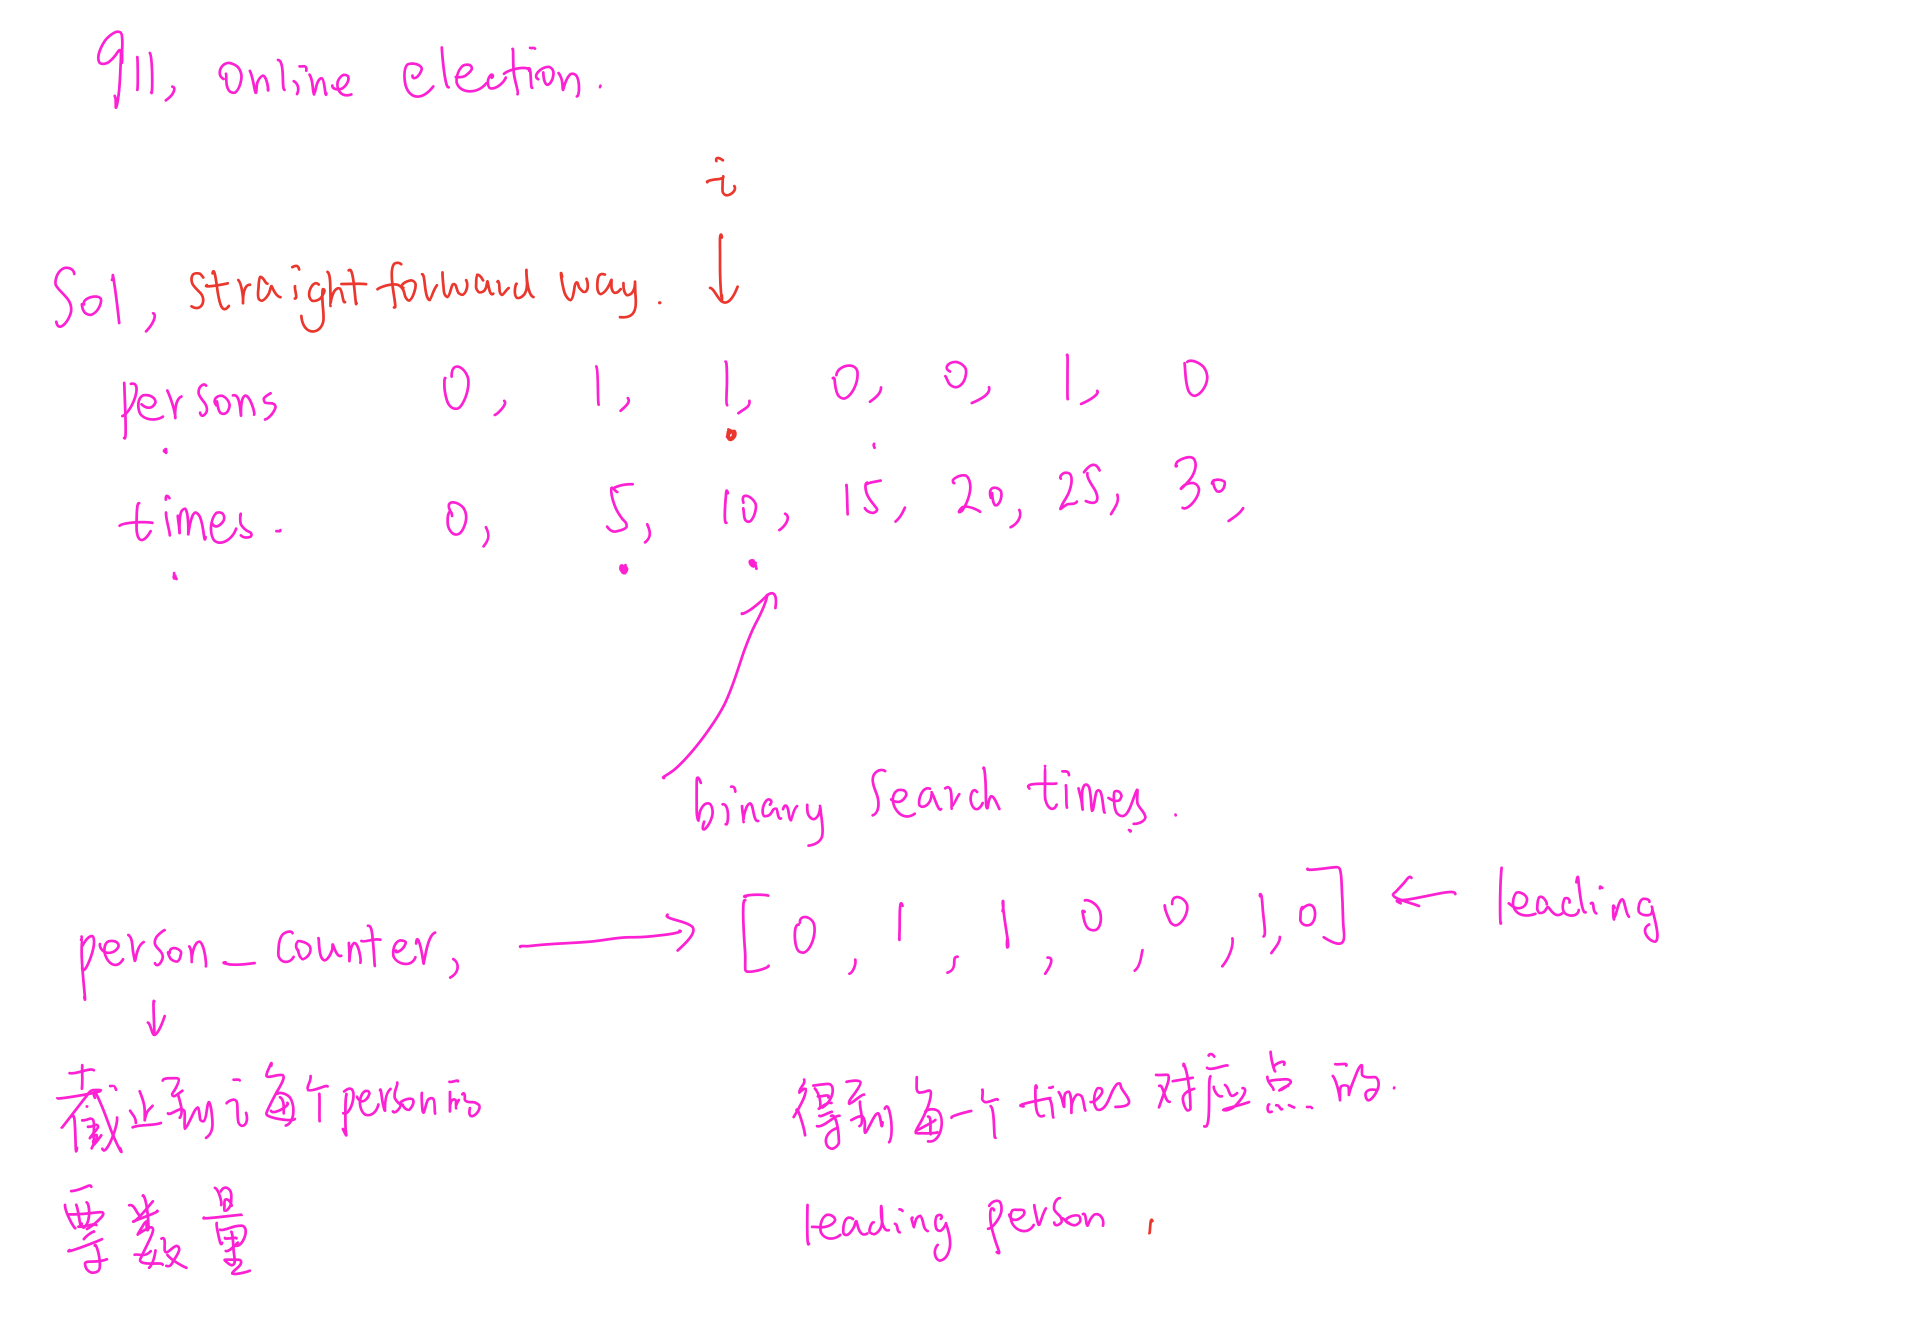 911, online election.
i
Sol, straight forward way.
persons 0, 1, 1, 0, 0, 1, 0
times. 0, 5, 10, 15, 20, 25, 30,
binary search times.
person_counter, → [0, 1, 1, 0, 0, 1, 0] ← leading
↓
截止到i每个person的
票数量
得到每一个times对应点的.
leading person,